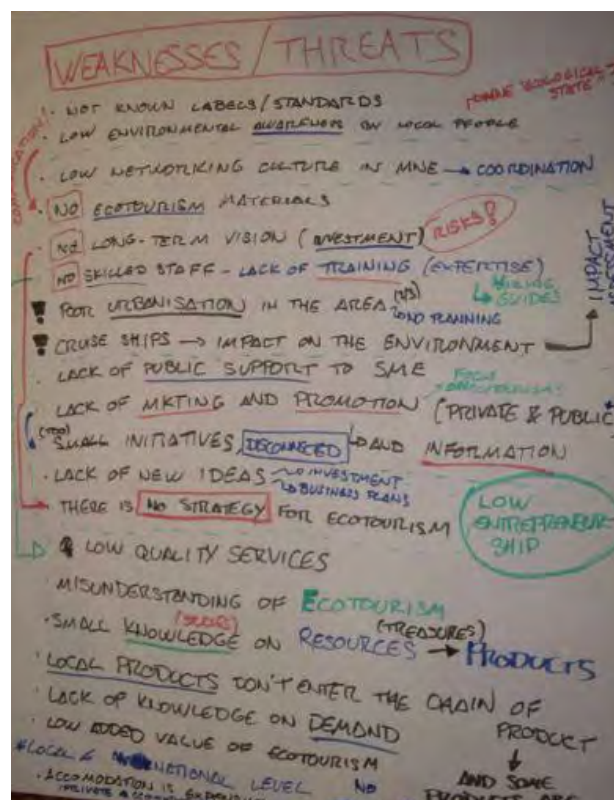 WEAKNESSES/THREATS
· NOT KNOWN LABELS/STANDARDS
ECOLOGICAL STATE
· LOW ENVIRONMENTAL AWARENESS ON LOCAL PEOPLE
· LOW NETWORKING CULTURE IN MNE → COORDINATION
· NO ECOTOURISM MATERIALS
· NO LONG-TERM VISION (INVESTMENT) RISKS!
· NO SKILLED STAFF - LACK OF TRAINING (EXPERTISE)
↳ HIKING GUIDES
! POOR URBANISATION IN THE AREA
NO PLANNING
! CRUSE SHIPS → IMPACT ON THE ENVIRONMENT
IMPACT
· LACK OF PUBLIC SUPPORT TO SME
· LACK OF MKTING AND PROMOTION (PRIVATE & PUBLIC*
FOCUS
(TOO)
SMALL INITIATIVES, DISCONNECTED AND INFORMATION
· LACK OF NEW IDEAS
NO INVESTMENT
↳ BUSINESS PLANS
· THERE IS NO STRATEGY FOR ECOTOURISM
LOW ENTREPRENEUR-
SHIP
LOW QUALITY SERVICES
· MISUNDERSTANDING OF ECOTOURISM
· SMALL KNOWLEDGE ON RESOURCES → PRODUCTS
(TREASURES)
· LOCAL PRODUCTS DON'T ENTER THE CHAIN OF PRODUCT
· LACK OF KNOWLEDGE ON DEMAND
· LOW ADDED VALUE OF ECOTOURISM
AND SOME
*LOCAL & NATIONAL LEVEL NO
· ACCOMODATION IS